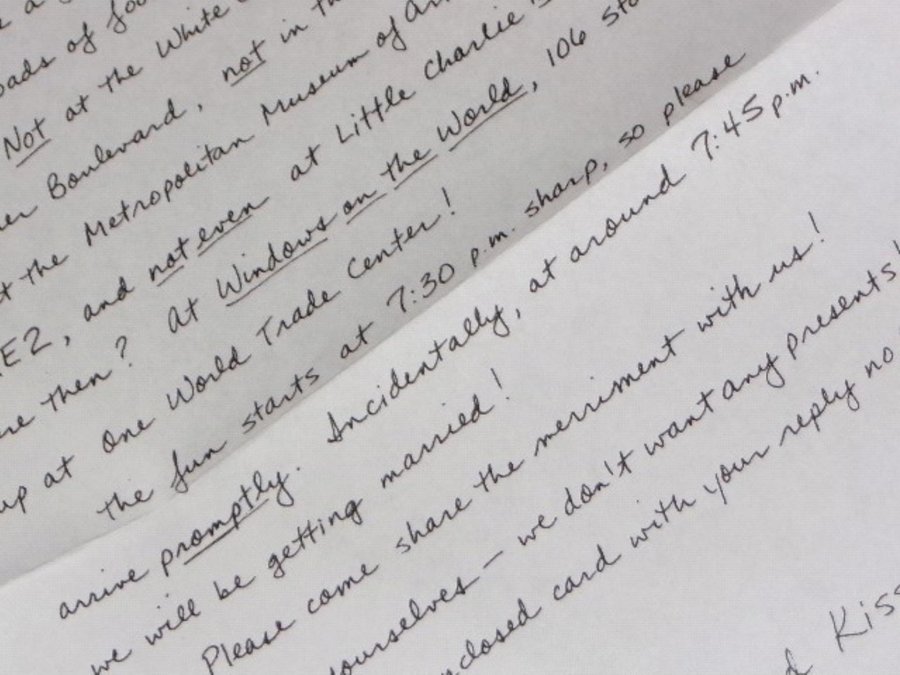 of foo
Not at the White
Boulevard, not in th
the Metropolitan Museum of Ar
E2, and not even at Little Charlie's
then? At Windows on the World, 106 sto
up at One World Trade Center!
the fun starts at 7:30 p.m. sharp, so please
arrive promptly. Incidentally, at around 7:45 p.m.
we will be getting married!
Please come share the merriment with us!
ourselves – we don't want any presents!
closed card with your reply no
Kiss